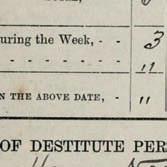 uring the Week, - - 3
- - - - - - - "
N THE ABOVE DATE, - "
OF DESTITUTE PER